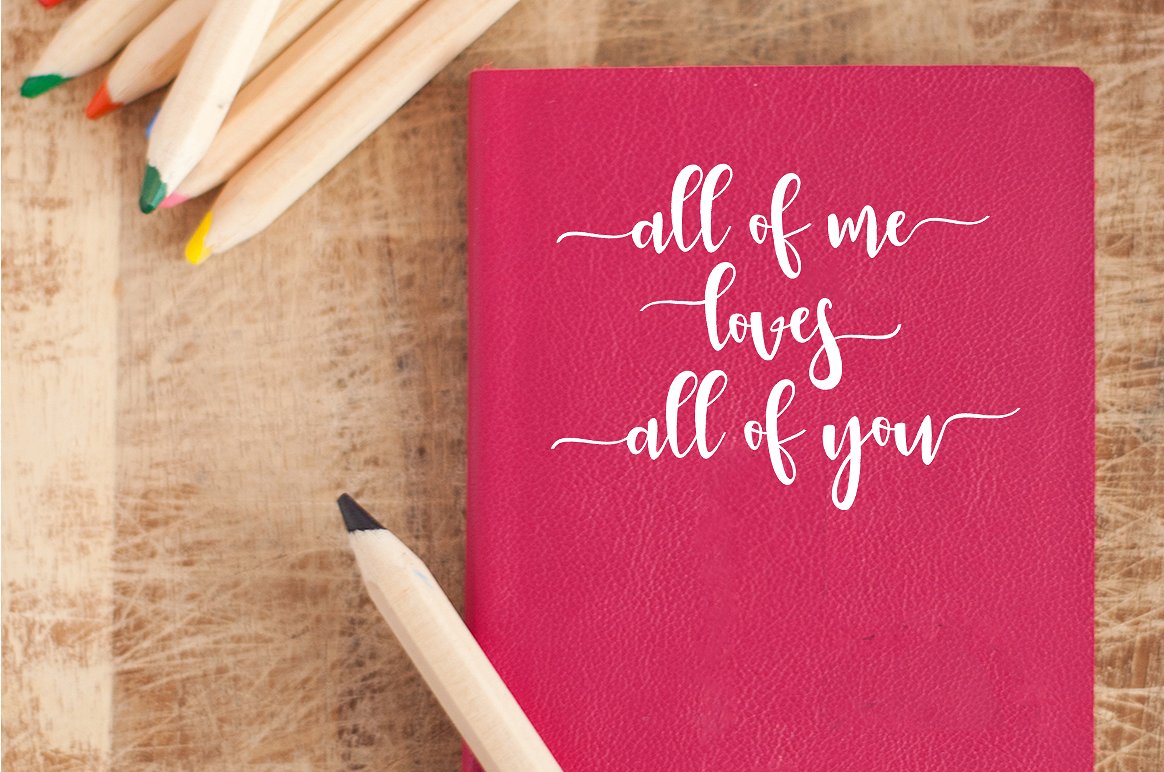 all of me
loves
all of you